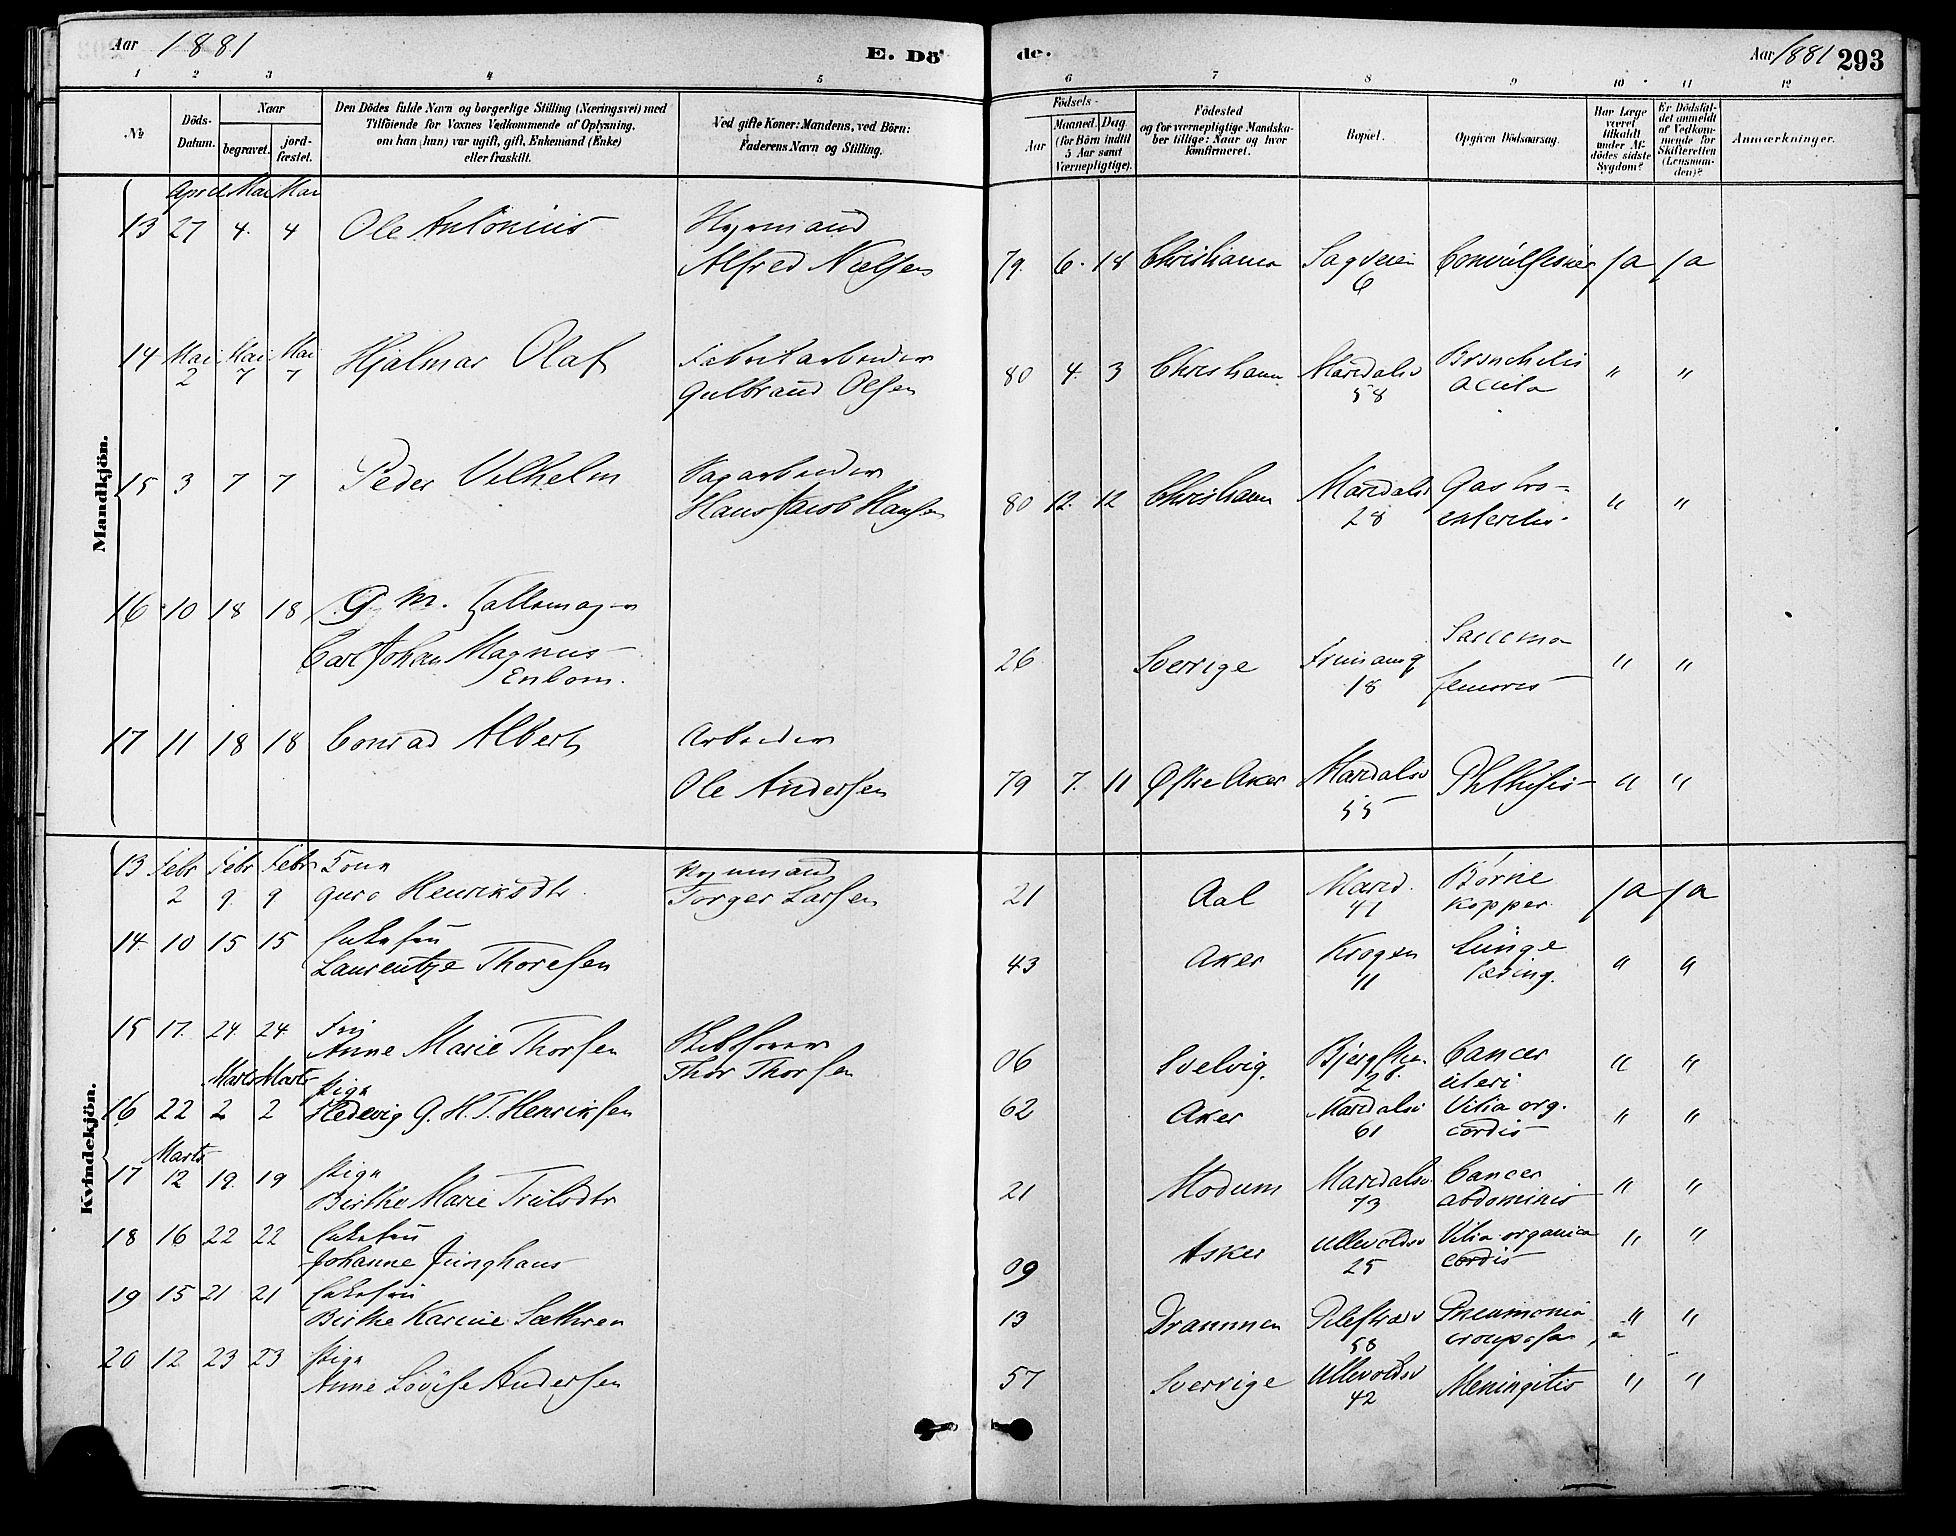 Aar 1881 E. Dö
de. Aar 1881 293
1 2 3 4 5 6 7 8 9 10 11 12
No
Döds-Datum.
Naar
begravet.
jord-fæstet.
Den Dödes fulde Navn og borgerlige Stilling (Næringsvei) med
Tilföiende for Voxnes Vedkommende af Oplysning,
om han (hun) var ugift, gift, Enkemand (Enke)
eller fraskilt.
Ved gifte Koner: Mandens, ved Börn:
Faderens Navn og Stilling.
Födsels-
Aar
Maaned. Dag
(for Börn indtil
5 Aar samt
Værnepligtige).
Födested
og for værnepligtige Mandska-
ber tillige: Naar og hvor
konfirmeret.
Bopæl.
Opgiven Dödsaarsag.
Har Læge
været
tilkaldt
under Af-
dödes sidste
Sygdom?
Er Dödsfal-
det anmeldt
af Vedkom-
mende for
Skifteretten
(Lensman-
den)?
Anmærkninger.
Mandkjön.
April Mai Mai
13 27 4. 4 Ole Antonius
Alfred Nielsen
79. 6. 18 Christiania Sagveien 6 Convulsioner Ja Ja
14 Mai 2 Mai 7 Mai 7 Hjalmar Olaf Fabrikarbeider
Gulbrand Olsen
80 4. 3 Christiania Maridalsv 58 Bronchitis acuta " "
15 3 7 7 Peder Vilhelm
Hans Jacob Hansen
80 12. 12 Christiania Maridalsv 28 Gastro-enteritis. " "
16 10 18 18
Carl Johan Magnus
Enbom.
26 Sverrige 18 femoris " "
17 11 18 18 Conrad Albert Arbeider
Ole Andersen
79 7. 11 Østre Aker Maridalsv 55 Phthisis " "
Kvindekjön.
13 Febr 2 Febr 9 Febr 9 Kone
Guro Henriksdtr.
Torger Larsen
21 Aal Marid. 41 Børnekopper. Ja Ja
14. 10 15 15 Enkefru
Laurentze Thoresen
43 Aker Krogen 11 Lunge " "
15 17. 24. 24 Fru
Anne Marie Thorsen
Thor Thorsen
06 Svelvig. Cancer uteri " "
Marts Marts
16 22 2 2 Pige
Hedevig G. H. T. Henriksen
62 Aker Maridalsv 61 Vitia org. cordis " "
Marts
17 12 19. 19 Pige
Birthe Marie Trulsdtr
21 Modum Maridalsv 73 Cancer abdominis " "
18 16 22 22 Enkefru
Johanne Junghans
09 Asker Ullevoldsv 25 Vitia organica cordis " "
19 15 21 21 Enkefru
Birthe Karine Sæthren
13 Drammen Pilestræd 58 Pneumonia crouposa " "
20 12 23 23 Pige
Anne Lovise Andersen
57 Sverrige Ullevoldsv 42 Meningitis " "